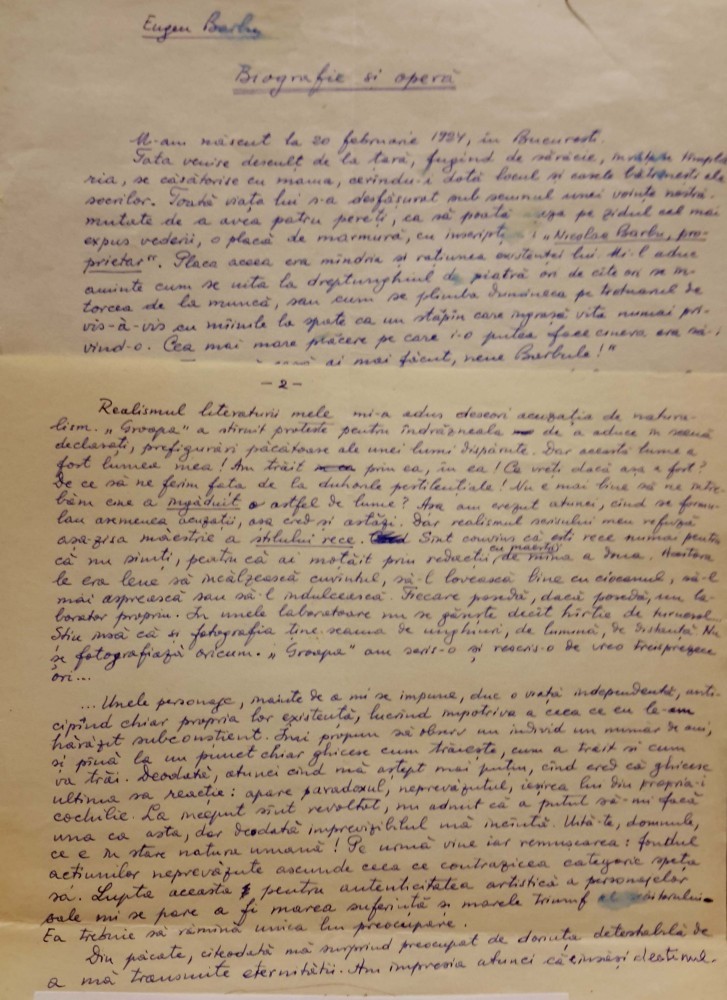 Eugen Barbu
Biografie si operă
M-am născut la 20 februarie 1924, în Bucuresti.
Tata venise descult de la tară, fugind de sărăcie,
ria, se căsătorise cu mama, cerîndu-i dotă locul si casele bătrînesti ale
socrilor. Toată viata lui s-a desfăsurat sub semnul unei vointe nestră-
mutate de a avea patru pereti, ca să poată pe zidul cel mai
expus vederii, o placă de marmură, cu : "Nicolae Barbu, pro-
prietar". Placa aceea era mîndria si ratiunea existentei lui. Mi-l aduc
aminte cum se uita la dreptunghiul de piatră ori de cîte ori se în-
torcea de la muncă, sau cum se plimba dumineca pe trotuarul de
vis-à-vis cu mîinile la spate ca un stăpîn care îngrasă vita numai pri-
vind-o. Cea mai mare plăcere pe care i-o putea face cineva era să-i
ai mai făcut, nene Barbule!"
- 2 -
Realismul literaturii mele mi-a adus deseori acuzatia de natura-
lism. "Groapa" a stîrnit proteste pentru îndrăzneala de a aduce în scenă
declasati, prefigurări păcătoase ale unei lumi dispărute. Dar această lume a
fost lumea mea! Am trăit prin ea, în ea! Ce vreti dacă asa a fost?
De ce să ne ferim fata de la duhorile pestilentiale! Nu e mai bine să ne între-
băm cine a îngăduit o astfel de lume? Asa am crezut atunci, cînd se formu-
lau asemenea acuzatii, asa cred si astăzi. Dar realismul scrisului meu refuză
asa-zisa măestrie a stilului rece. Sînt convins că esti rece numai pentru
că nu simti, pentru că ai motăit prin redactii, cu maestri de mîna a doua. Acestora
le era lene să încălzească cuvîntul, să-l lovească bine cu ciocanul, să-l
mai asprească sau să-l îndulcească. Fiecare posedă, dacă posedă, un la-
borator propriu. In unele laboratoare nu se găseste decît hîrtie de turnesol.
Stiu însă că si fotografia tine seama de unghiuri, de lumină, de distantă. Nu
se fotografiază oricum. "Groapa" am scris-o si rescris-o de vreo treisprezece
ori...
...Unele personaje, înainte de a mi se impune, duc o viată independentă, anti-
cipînd chiar propria lor existentă, lucrînd împotriva a ceea ce eu le-am
hărăzit subconstient. Imi propun să observ un individ un număr de ani,
si pînă la un punct chiar ghicesc cum trăieste, cum a trăit si cum
va trăi. Deodată, atunci cînd mă astept mai putin, cînd cred că ghicesc
ultima sa reactie: apare paradoxul, neprevăzutul, iesirea lui din propria-i
cochilie. La început sînt revoltat, nu admit că a putut să-mi facă
una ca asta, dar deodată imprevizibilul mă încîntă. Uită-te, domnule,
ce e în stare natura umană! Pe urmă vine iar remuscarea: fondul
actiunilor neprevăzute ascunde ceea ce contrazicea categoric speta
să. Lupta aceasta pentru autenticitatea artistică a personajelor
sale mi se pare a fi marea suferintă si marele triumf al scriitorului.
Ea trebuie să rămînă unica lui preocupare.
Din păcate, cîteodată mă surprind preocupat de dorinta detestabilă de
a mă transmite eternitătii. Am impresia atunci că însăsi destinul